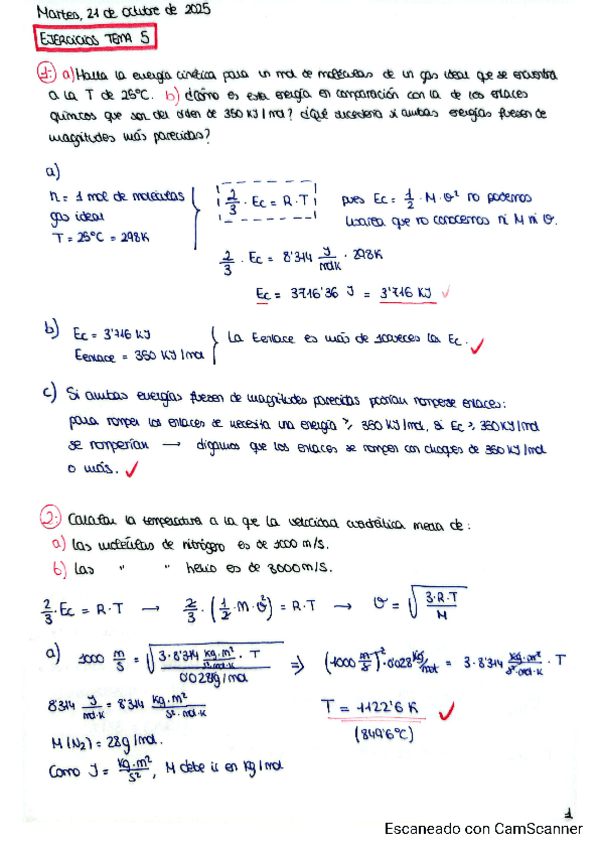 Martes, 21 de Octubre de 2025
EJERCICIOS TEMA 5
1. a) Halla la energía cinética para un mol de moléculas de un gas ideal que se encuentra
a la T de 25ºC. b) ¿Cómo es esta energía en comparación con la de los enlaces
químicos que son del orden de 350 KJ/mol? ¿Qué sucedería si ambas energías fuesen de
magnitudes más parecidas?
a)
n = 1 mol de moléculas
gas ideal
T = 25ºC = 298K
2/3 · Ec = R · T
pues Ec = 1/2 · M · v² no podemos
usarla que no conocemos ni M ni v.
2/3 · Ec = 8'314 J/mol·K · 298K
Ec = 3716'36 J = 3'716 KJ
b) Ec = 3'716 KJ
Eenlace = 350 KJ/mol
La Eenlace es más de 100 veces la Ec.
c) Si ambas energías fuesen de magnitudes parecidas podrían romperse enlaces:
para romper los enlaces se necesita una energía ≥ 350 KJ/mol, si Ec ≥ 350 KJ/mol
se romperían → digamos que los enlaces se rompen con choques de 350 KJ/mol
o más.
2. Calcular la temperatura a la que la velocidad cuadrática media de:
a) Las moléculas de nitrógeno es de 1000 m/s.
b) Las " " helio es de 3000 m/s.
2/3 · Ec = R · T → 2/3 · (1/2 · M · v²) = R · T → v = √(3·R·T/M)
a) 1000 m/s = √(3·8'314 kg·m²/s²·mol·K · T / 0'028 g/mol) ⇒ (1000 m/s)² · 0'028 kg/mol = 3·8'314 kg·m²/s²·mol·K · T
8'314 J/mol·K = 8'314 kg·m²/s²·mol·K
T = 1122'6 K
(849'6ºC)
M(N₂) = 28 g/mol.
Como J = kg·m²/s², M debe ir en kg/mol
1
Escaneado con CamScanner